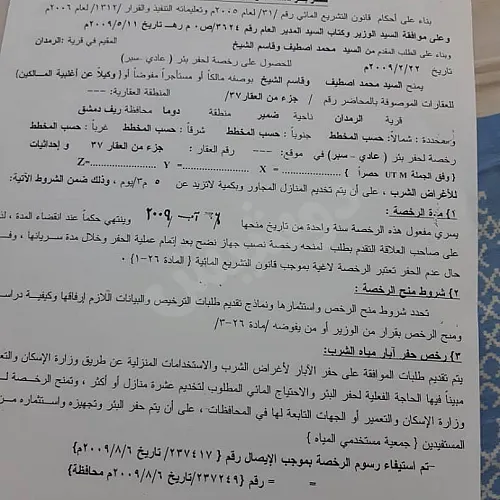 بناء على أحكام قانون التشريع المائي رقم /٣١/ لعام ٢٠٠٥م وتعليماته التنفيذ والقرار /١٣١٢/ لعام ٢٠٠٦م
وعلى موافقة السيد الوزير وكتاب السيد المدير العام رقم ٣٦٢٤/ص م ر هـ تاريخ ٢٠٠٩/٥/١١م
وبناء على الطلب المقدم من السيد محمد اصطيف وقاسم الشيخ المقيم في قرية: الرمدان
تاريخ ٢٠٠٩/٢/٢٢م للحصول على رخصة لحفر بئر (عادي - سبر)
يمنح السيد محمد اصطيف وقاسم الشيخ بوصفه مالكاً أو مستأجراً مفوضاً أو (وكيلاً عن أغلبية المالكين)
للعقارات الموصوفة بالمحاضر رقم / جزء من العقار ٣٧/ المنطقة العقارية: ---
قرية الرمدان ناحية ضمير منطقة دوما محافظة ريف دمشق
ومحددة: شمالاً: حسب المخطط جنوباً: حسب المخطط شرقاً: حسب المخطط غرباً: حسب المخطط
رخصة لحفر بئر (عادي - سبر) في موقع: --- رقم العقار: جزء من العقار ٣٧ و إحداثيات
{ وفق الجملة UTM حصراً } X = Y = Z=
للأغراض الشرب ، على أن يتم تخديم المنازل المجاور وبكمية لاتزيد عن ٥ م٣/يوم، وذلك ضمن الشروط الآتية:
١} مدة الرخصة :
يسري مفعول هذه الرخصة سنة واحدة من تاريخ منحها آب ٢٠٠٩ وينتهي حكماً عند انقضاء المدة ،
على صاحب العلاقة التقدم بطلب لمنحه رخصة نصب جهاز نضح بعد إتمام عملية الحفر وخلال مدة سريانها ،
حال عدم الحفر تعتبر الرخصة لاغية بموجب قانون التشريع المائية { المادة ٢٦-١} ٠
٢} شروط منح الرخصة :
تحدد شروط منح الرخص واستثمارها ونماذج تقديم طلبات الترخيص والبيانات اللازم إرفاقها وكيفية
ومنح الرخص بقرار من الوزير أو من يفوضه /مادة ٢٦-٣/
٣} رخص حفر آبار مياه الشرب:
يتم تقديم طلبات الموافقة على حفر الآبار لأغراض الشرب والاستخدامات المنزلية عن طريق وزارة الإسكان
مبيناً فيها الحاجة الفعلية لحفر البئر والاحتياج المائي المطلوب لتخديم عشرة منازل أو أكثر ، وتمنح الرخصة
وزارة الإسكان والتعمير أو الجهات التابعة لها في المحافظات ، على أن يتم حفر البئر وتجهيزه واستثماره من
المستفيدين { جمعية مستخدمي المياه }
-تم استيفاء رسوم الرخصة بموجب الإيصال رقم { ٢٣٧٤١٧/ تاريخ ٢٠٠٩/٨/٦م}
= = رقم {٢٣٧٢٤٩/تاريخ ٢٠٠٩/٨/٦م محافظة}